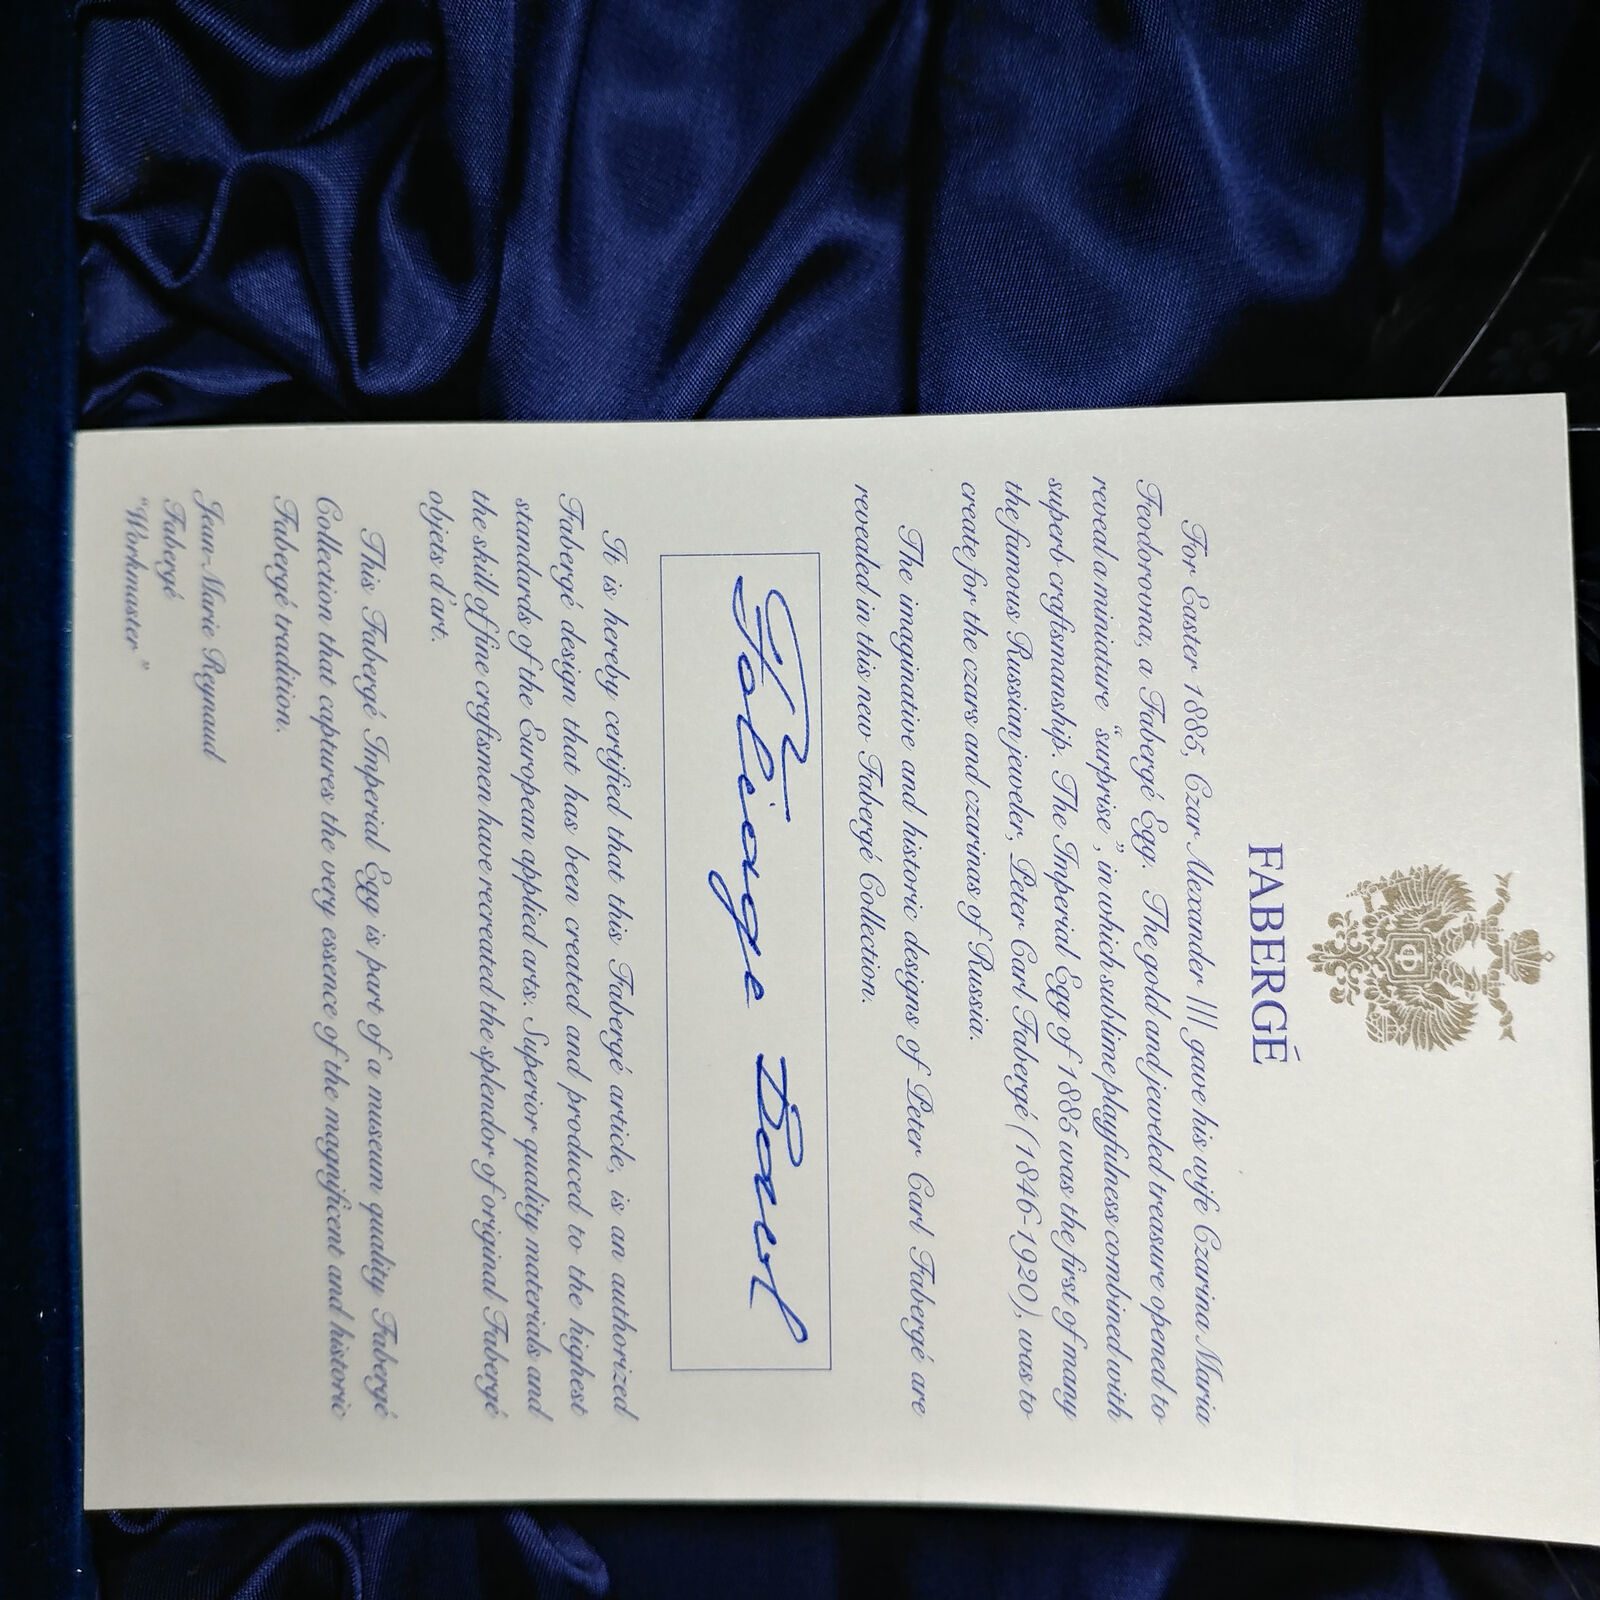 FABERGÉ
For Easter 1885, Czar Alexander III gave his wife Czarina Maria
Feodorovna, a Fabergé Egg. The gold and jeweled treasure opened to
reveal a miniature “surprise”, in which sublime playfulness combined with
superb craftsmanship. The Imperial Egg of 1885 was the first of many
the famous Russian jeweler, Peter Carl Fabergé (1846-1920), was to
create for the czars and czarinas of Russia.
The imaginative and historic designs of Peter Carl Fabergé are
revealed in this new Fabergé Collection.
Foliage Bowl
It is hereby certified that this Fabergé article, is an authorized
Fabergé design that has been created and produced to the highest
standards of the European applied arts. Superior quality materials and
the skill of fine craftsmen have recreated the splendor of original Fabergé
objets d'art.
This Fabergé Imperial Egg is part of a museum quality Fabergé
Collection that captures the very essence of the magnificent and historic
Fabergé tradition.
Jean-Marie Reynaud
Fabergé
“Workmaster”